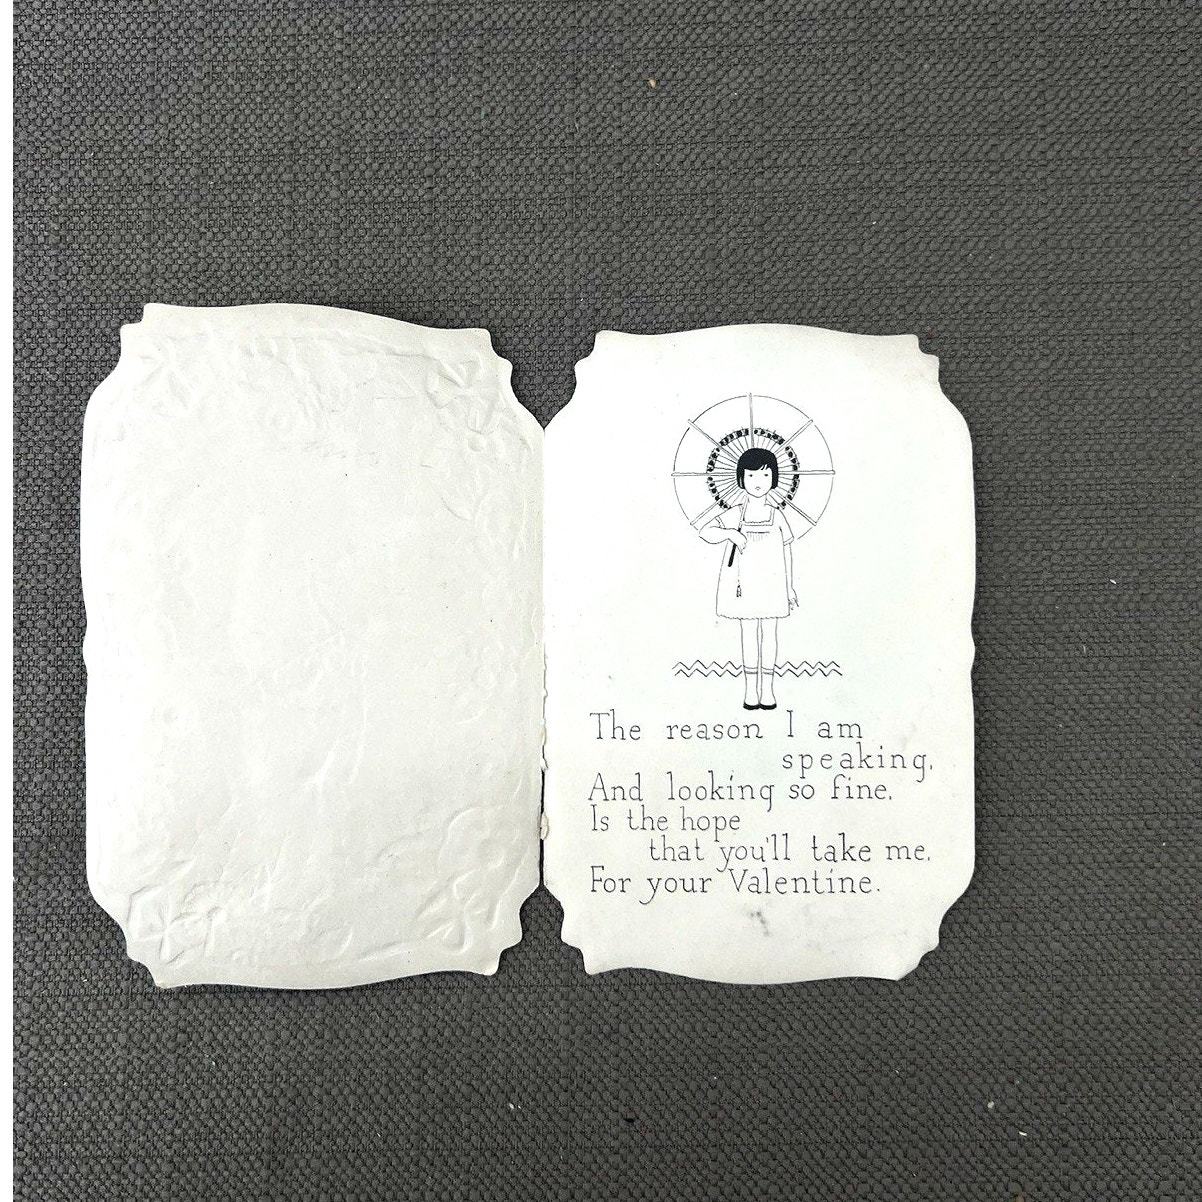 The reason I am
speaking,
And looking so fine,
Is the hope
that you'll take me,
For your Valentine.